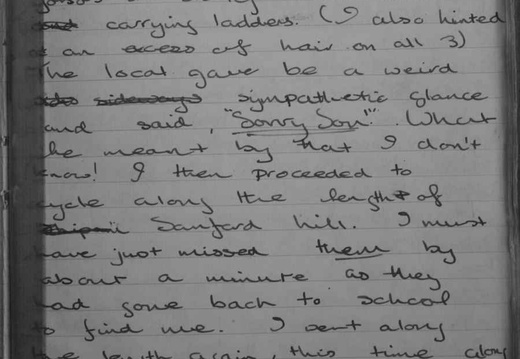 carrying ladders. (I also hinted
at an excess of hair on all 3)
The local gave be a weird
sideways sympathetic glance
and said, "Sorry Son". What
he meant by that I don't
know! I then proceeded to
cycle along the length of
Sanford hill. I must
have just missed them by
about a minute as they
had gone back to school
to find me. I went along
the length again, this time along